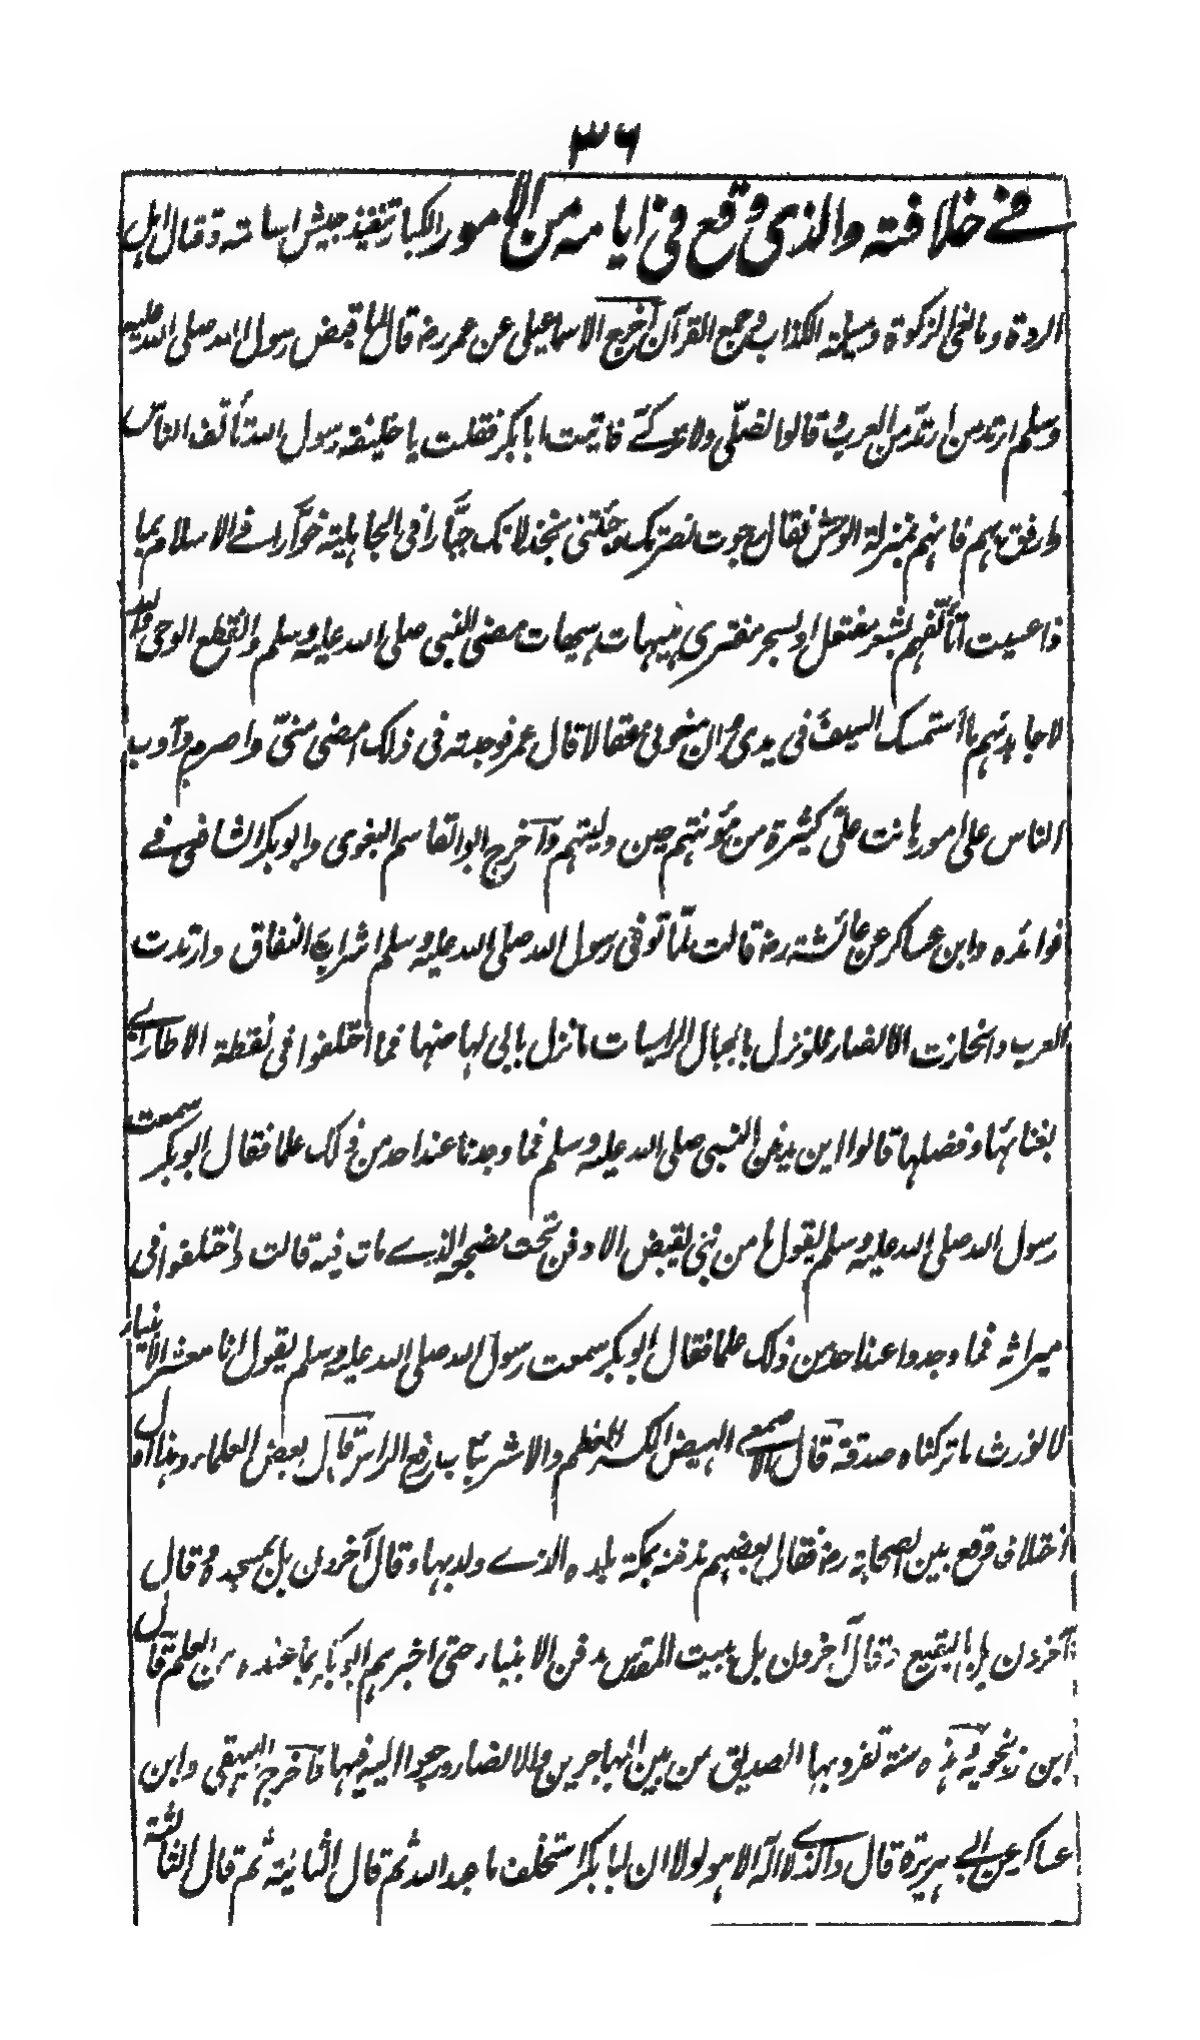 ٣٦
فى خلافته والذى وقع فى ايامه من الامور الكبار تنفيذ جيش اسامة وقتال اهل
الردة ومانعى الزكوة ومسيلمة الكذاب وجمع القرآن اخرج الاسماعيلى عن عمر رضـ قال لما قبض رسول الله صلى الله عليه
وسلم ارتد من ارتد من العرب وقالوا نصلّى ولا نزكّے فاتيت ابا بكر فقلت يا خليفة رسول الله تألّف الناس
وارفق بهم فانهم بمنزلة الوحش فقال رجوت نصرتك وجئتنى بخذلانك جبّارا فى الجاهلية خوّارا فے الاسلام بما
ذا عسيت اتألّفهم بشعر مفتعل او بسحر مفترى هيهات هيهات مضى النبى صلى الله عليه وسلم وانقطع الوحى والله
لاجاهدنهم ما استمسك السيف فى يدى وان منعونى عقالا قال عمر فوجدته فى ذلك امضى منّى واصرم وآدب
الناس على امور هانت علىّ كثيرة من مؤنتهم حين وليتهم وآخرج ابو القاسم البغوى وابو بكر الشافعى فے
فوائده وابن عساكر عن عائشة رضـ قالت لمّا توفى رسول الله صلى الله عليه وسلم اشرابّ النفاق وارتدت
العرب وانحازت الانصار فلو نزل بالجبال الراسيات ما نزل بابى لهاضها فما اختلفوا فى نقطة الا طار ابے
بفنائها وفضلها قالوا اين يدفن النبى صلى الله عليه وسلم فما وجدنا عند احد من ذلك علما فقال ابو بكر سمعت
رسول الله صلى الله عليه وسلم يقول ما من نبى يقبض الا دفن تحت مضجعه الذے مات فيه قالت واختلفوا فى
ميراثه فما وجدوا عند احد من ذلك علما فقال ابو بكر سمعت رسول الله صلى الله عليه وسلم يقول انا معشر الانبياء
لا نورث ما تركناه صدقة قال الاصمعے الهيض الكسر للعظم والاشريباب رفع الراس قال بعض العلماء وهذا اول
اختلاف وقع بين الصحابة رضـ فقال بعضهم ندفنه بمكة بلده الذے ولد بها وقال آخرون بل بمسجده وقال
آخرون بل بالبقيع وقال آخرون بل ببيت المقدس مدفن الانبياء حتى اخبرهم ابو بكر بما عنده من العلم قال
ابن زنجويه وهذه سنة تفرد بها الصديق من بين المهاجرين والانصار ورجعوا اليه فيها وآخرج البيهقى وابن
عساكر عن ابے هريرة قال والذے لا اله الا هو لولا ان ابا بكر استخلف ما عبد الله ثم قال الثانية ثم قال الثالثة